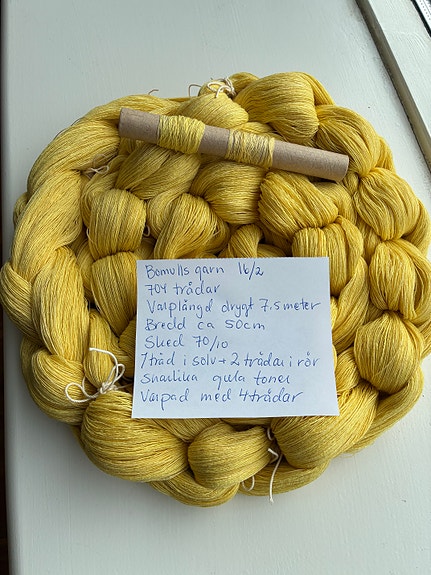 Bomulls garn 16/2
704 trådar
Varplängd drygt 7.5 meter
Bredd ca 50cm
Sked 70/10
1 tråd i solv + 2 trådar i rör
Snarlika gula toner
Varpad med 4 trådar